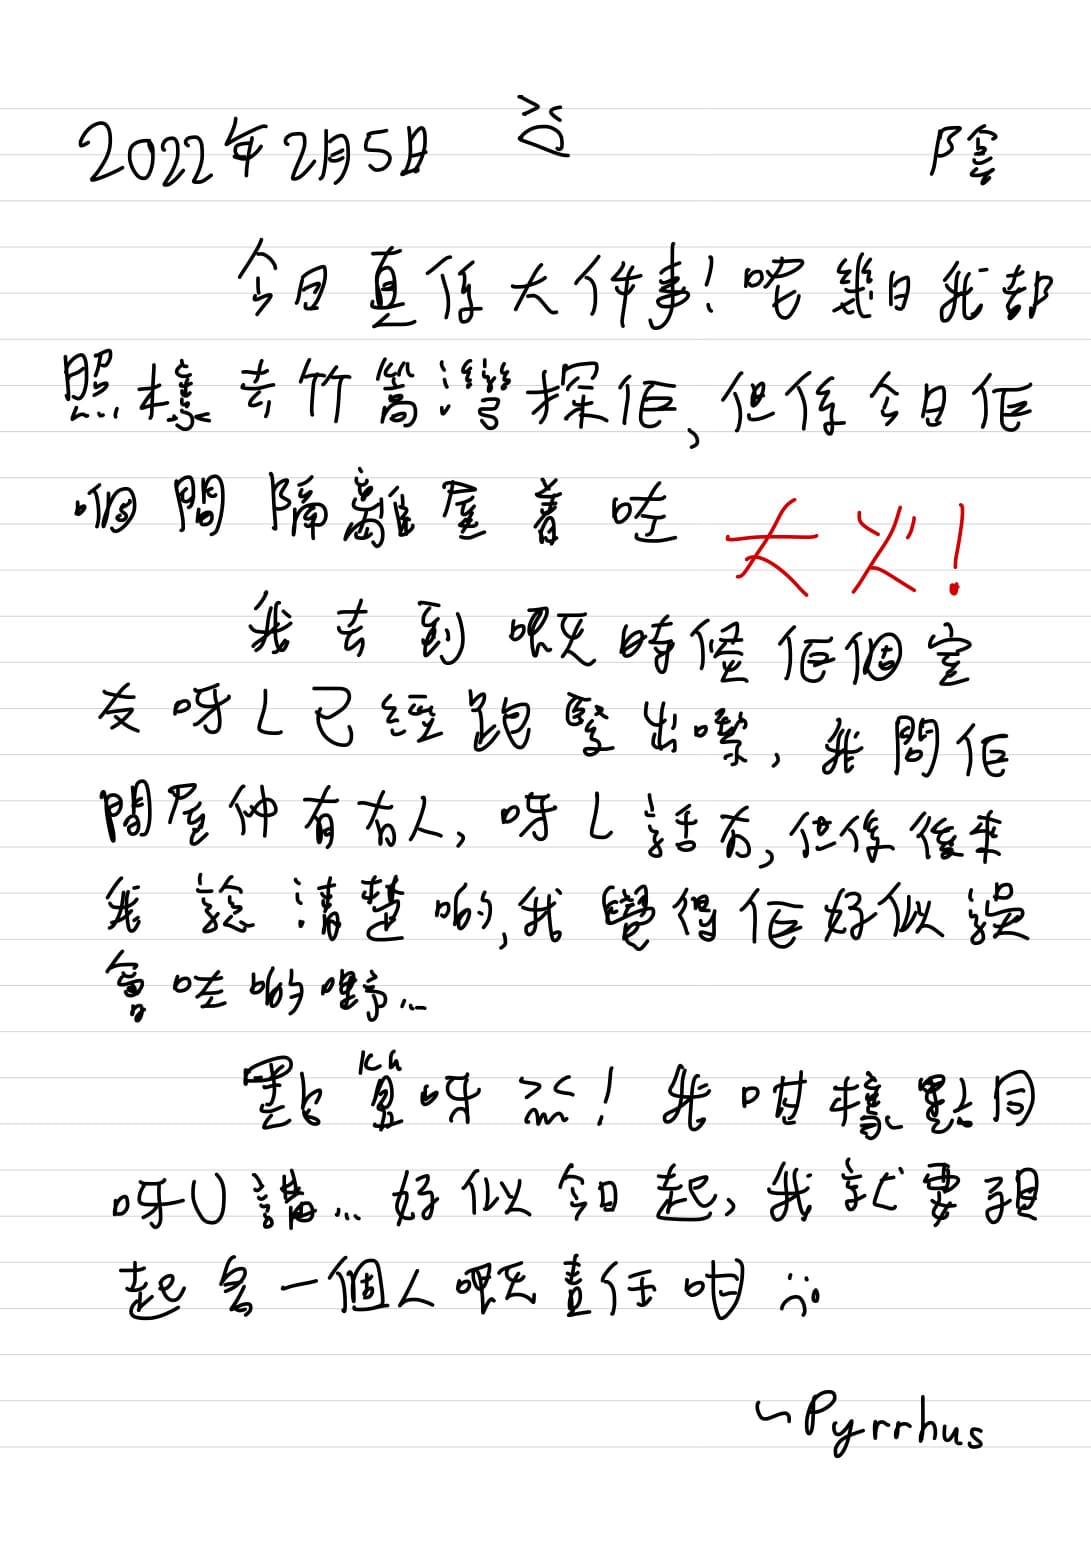 2022年2月5日 陰
今日真係大件事！呢幾日我都
照樣去竹篙灣探佢，但係今日佢
嗰間隔離屋着咗大火！
我去到嘅時候佢個室
友呀L已經跑緊出嚟，我問佢
間屋仲有冇人，呀L話冇，但係後來
我諗清楚啲，我覺得佢好似誤
會咗啲嘢...
點算呀！我咁樣點同
呀U講...好似今日起，我就要預
起另一個人嘅責任咁
~Pyrrhus